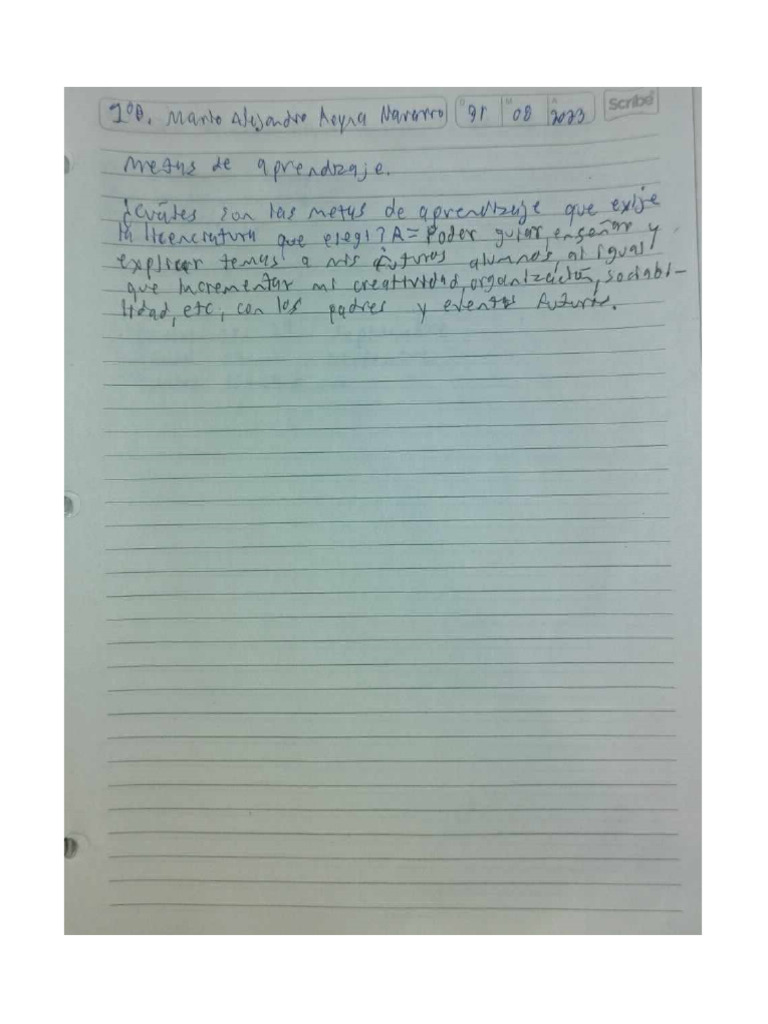 1°B. Mario Alejandro Reyna Navarro 31 08 2023 Scribe
Metas de aprendizaje.
¿Cuáles son las metas de aprendizaje que exije
la licenciatura que elegi? R= Poder guiar, enseñar y
explicar temas a mis futuros alumnos, al igual
que incrementar mi creatividad, organización, sociabi-
lidad, etc, con los padres y eventos futuros.